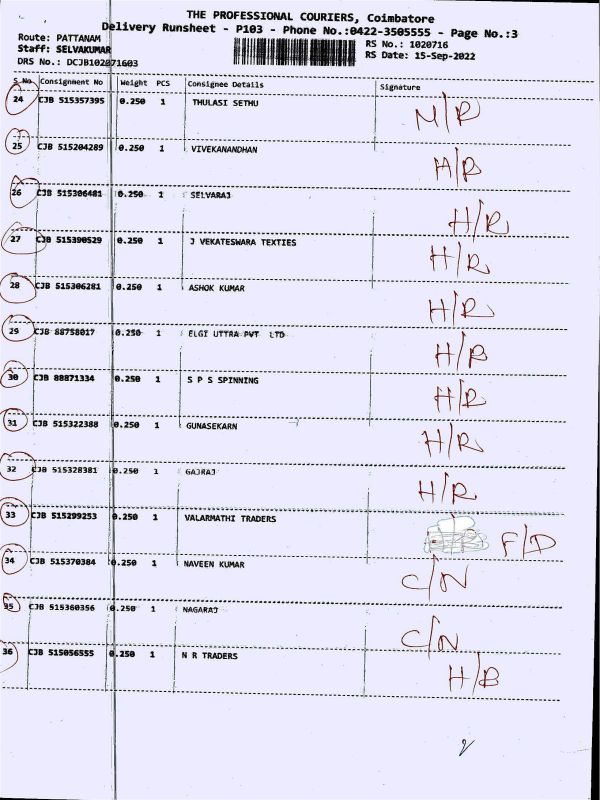 THE PROFESSIONAL COURIERS, Coimbatore
Delivery Runsheet - P103 - Phone No.:0422-3505555 - Page No.:3
Route: PATTANAM RS No.: 1020716
Staff: SELVAKUMAR RS Date: 15-Sep-2022
DRS No.: DCJB102071603
S No Consignment No Weight PCS Consignee Details Signature
24 CJB 515357395 0.250 1 THULASI SETHU M/R
25 CJB 515204289 0.250 1 VIVEKANANDHAN H/R
26 CJB 515306481 0.250 1 SELVARAJ H/R
27 CJB 515390529 0.250 1 J VEKATESWARA TEXTIES H/R
28 CJB 515306281 0.250 1 ASHOK KUMAR H/R
29 CJB 88758017 0.250 1 ELGI UTTRA PVT LTD H/B
30 CJB 88871334 0.250 1 S P S SPINNING H/R
31 CJB 515322388 0.250 1 GUNASEKARN H/R
32 CJB 515328381 0.250 1 GAJRAJ H/R
33 CJB 515299253 0.250 1 VALARMATHI TRADERS F/D
34 CJB 515370384 0.250 1 NAVEEN KUMAR C/N
35 CJB 515360356 0.250 1 NAGARAJ C/N
36 CJB 515056555 0.250 1 N R TRADERS H/B